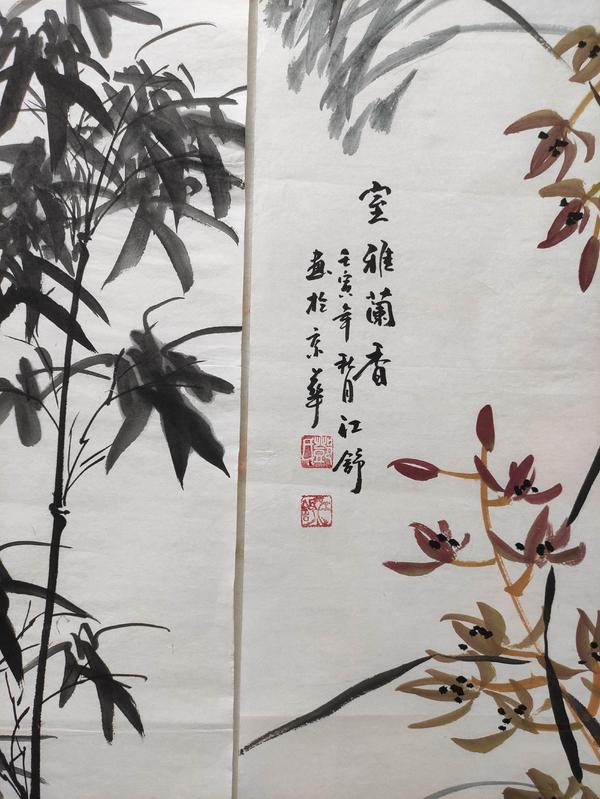 室雅蘭香
壬寅年秋月江舒
畫於京華